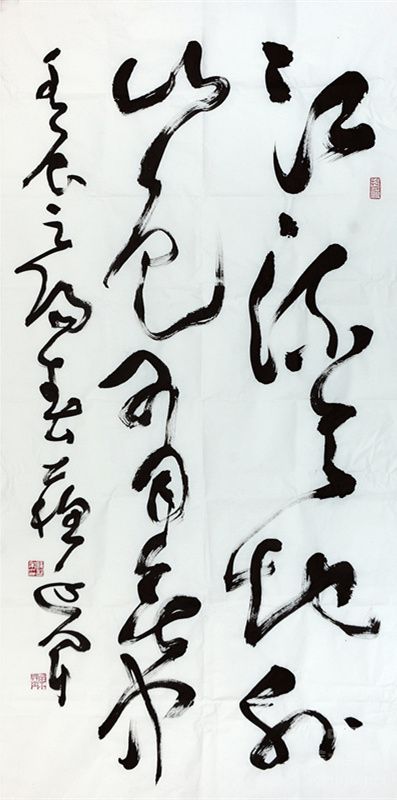 江流天地外
山色有無中
壬辰之陽春